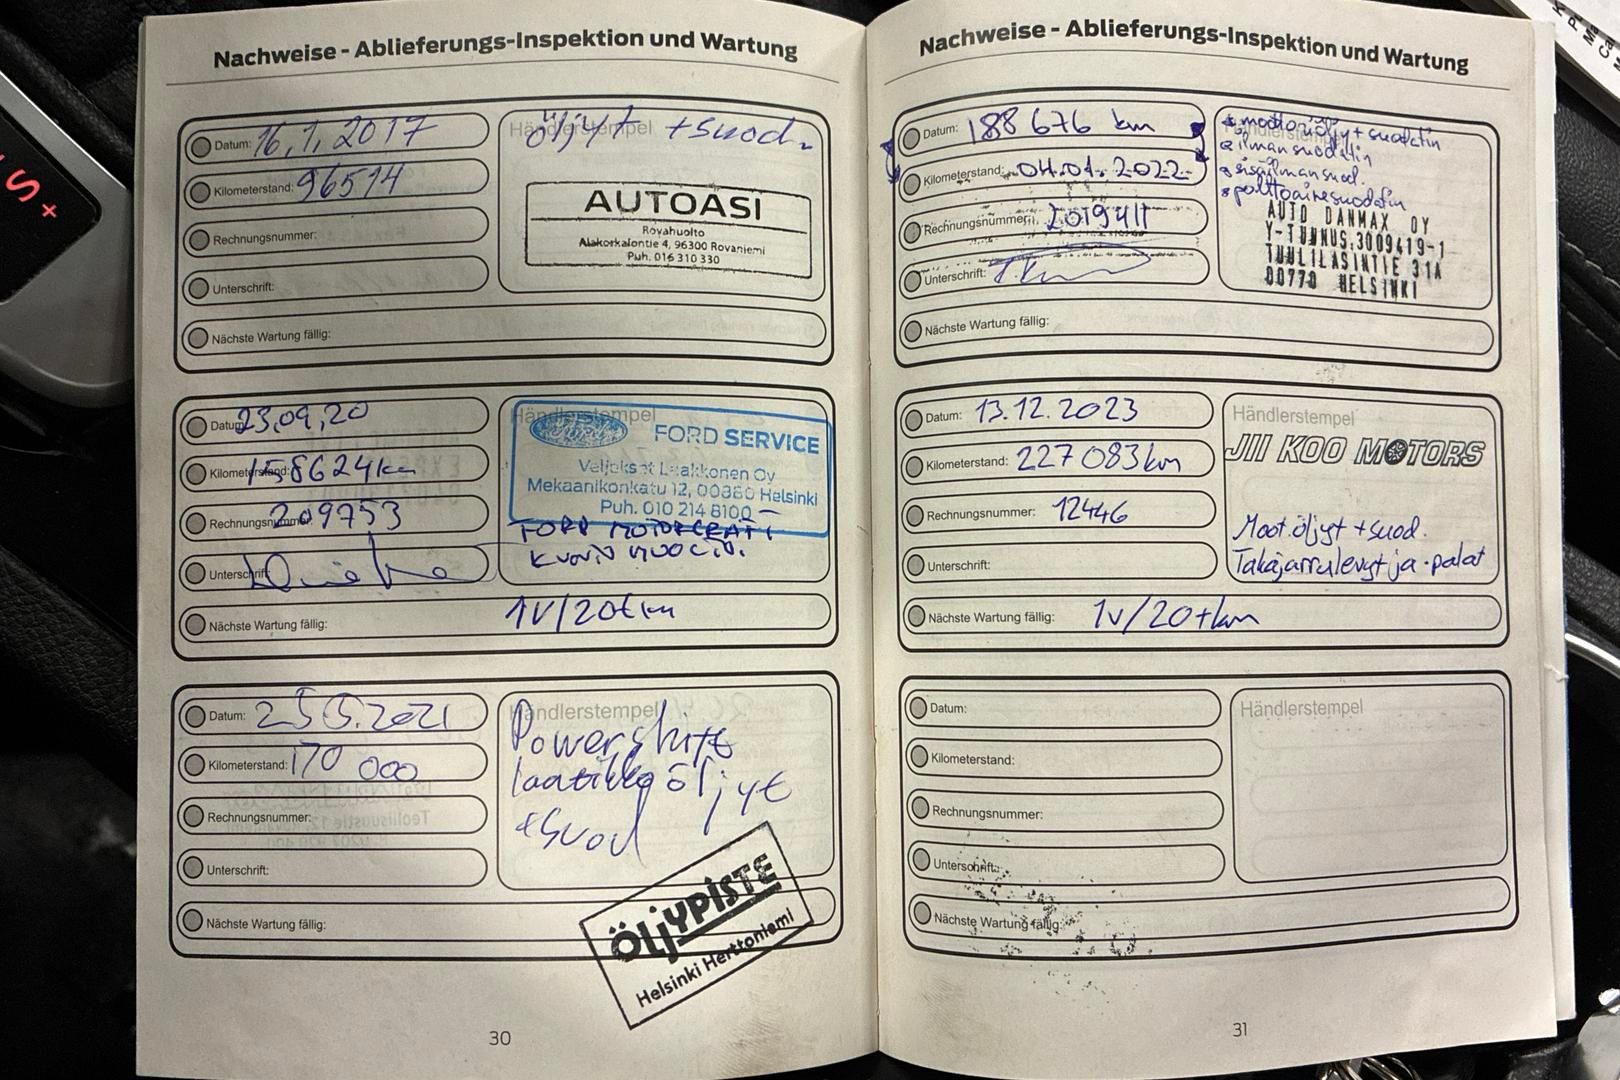 Nachweise - Ablieferungs-Inspektion und Wartung
Datum: 16.1.2017
Kilometerstand: 96514
Rechnungsnummer:
Unterschrift:
Nächste Wartung fällig:
Händlerstempel
öljyt +suod.
AUTOASI
Rovahuolto
Alakorkalontie 4, 96300 Rovaniemi
Puh. 016 310 330
Datum: 23,09,20
Kilometerstand: 158624km
Rechnungsnummer: 209753
Unterschrift:
Nächste Wartung fällig: 1V/20tkm
Händlerstempel
Ford FORD SERVICE
Veljekset Laakkonen Oy
Mekaanikonkatu 12, 00880 Helsinki
Puh. 010 214 8100
FORD MOTORCRAFT
Datum: 25.5.2021
Kilometerstand: 170 000
Rechnungsnummer:
Unterschrift:
Nächste Wartung fällig:
Händlerstempel
Powershift
laatikko öljyt
+suod
ÖLJYPISTE
Helsinki Herttoniemi
30
Nachweise - Ablieferungs-Inspektion und Wartung
Datum: 188 676 km
Kilometerstand: 04.01.2022
Rechnungsnummer:
Unterschrift:
Nächste Wartung fällig:
Händlerstempel
moottoriöljy + suodatin
ilmansuodatin
sisäilmansuod.
polttoainesuodatin
AUTO DANMAX OY
Y-TUNNUS:3009419-1
TUULILASINTIE 31A
00770 HELSINKI
Datum: 13.12.2023
Kilometerstand: 227 083km
Rechnungsnummer: 12446
Unterschrift:
Nächste Wartung fällig: 1v/20tkm
Händlerstempel
JII KOO MOTORS
Moot.öljyt +suod.
Takajarrulevyt ja -palat
Datum:
Kilometerstand:
Rechnungsnummer:
Unterschrift:
Nächste Wartung fällig:
Händlerstempel
31